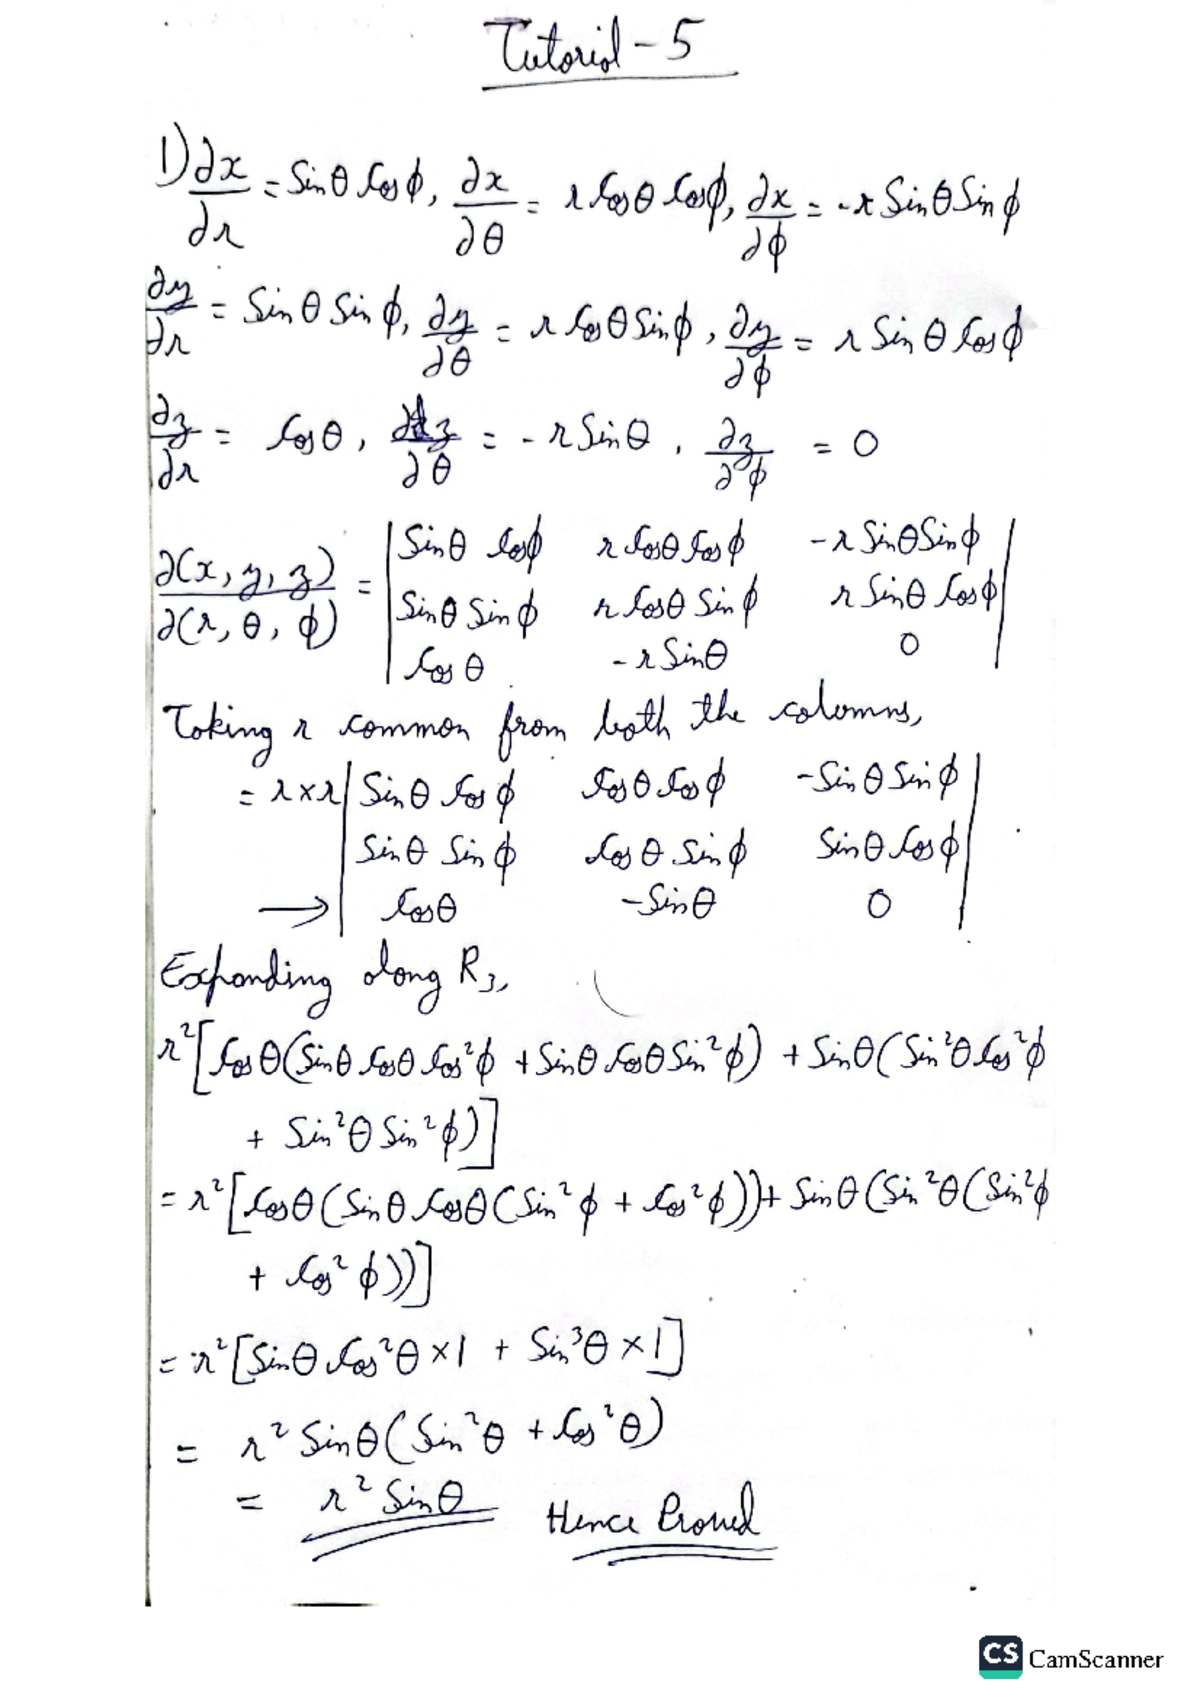 Tutorial - 5
1) ∂x/∂r = Sinθ Cosϕ, ∂x/∂θ = r Cosθ Cosϕ, ∂x/∂ϕ = -r Sinθ Sinϕ
∂y/∂r = Sinθ Sinϕ, ∂y/∂θ = r Cosθ Sinϕ, ∂y/∂ϕ = r Sinθ Cosϕ
∂z/∂r = Cosθ, ∂z/∂θ = -r Sinθ, ∂z/∂ϕ = 0
∂(x, y, z)/∂(r, θ, ϕ) = | Sinθ Cosϕ r Cosθ Cosϕ -r Sinθ Sinϕ |
| Sinθ Sinϕ r Cosθ Sinϕ r Sinθ Cosϕ |
| Cosθ -r Sinθ 0 |
Taking r common from both the columns,
= r×r | Sinθ Cosϕ Cosθ Cosϕ -Sinθ Sinϕ |
| Sinθ Sinϕ Cosθ Sinϕ Sinθ Cosϕ |
→ | Cosθ -Sinθ 0 |
Expanding along R₃,
r²[Cosθ(Sinθ Cosθ Cos²ϕ + Sinθ Cosθ Sin²ϕ) + Sinθ(Sin²θ Cos²ϕ
+ Sin²θ Sin²ϕ)]
= r²[Cosθ(Sinθ Cosθ(Sin²ϕ + Cos²ϕ)) + Sinθ(Sin²θ(Sin²ϕ
+ Cos²ϕ))]
= r²[Sinθ Cos²θ×1 + Sin³θ×1]
= r² Sinθ(Sin²θ + Cos²θ)
= r² Sinθ Hence Proved
CS CamScanner